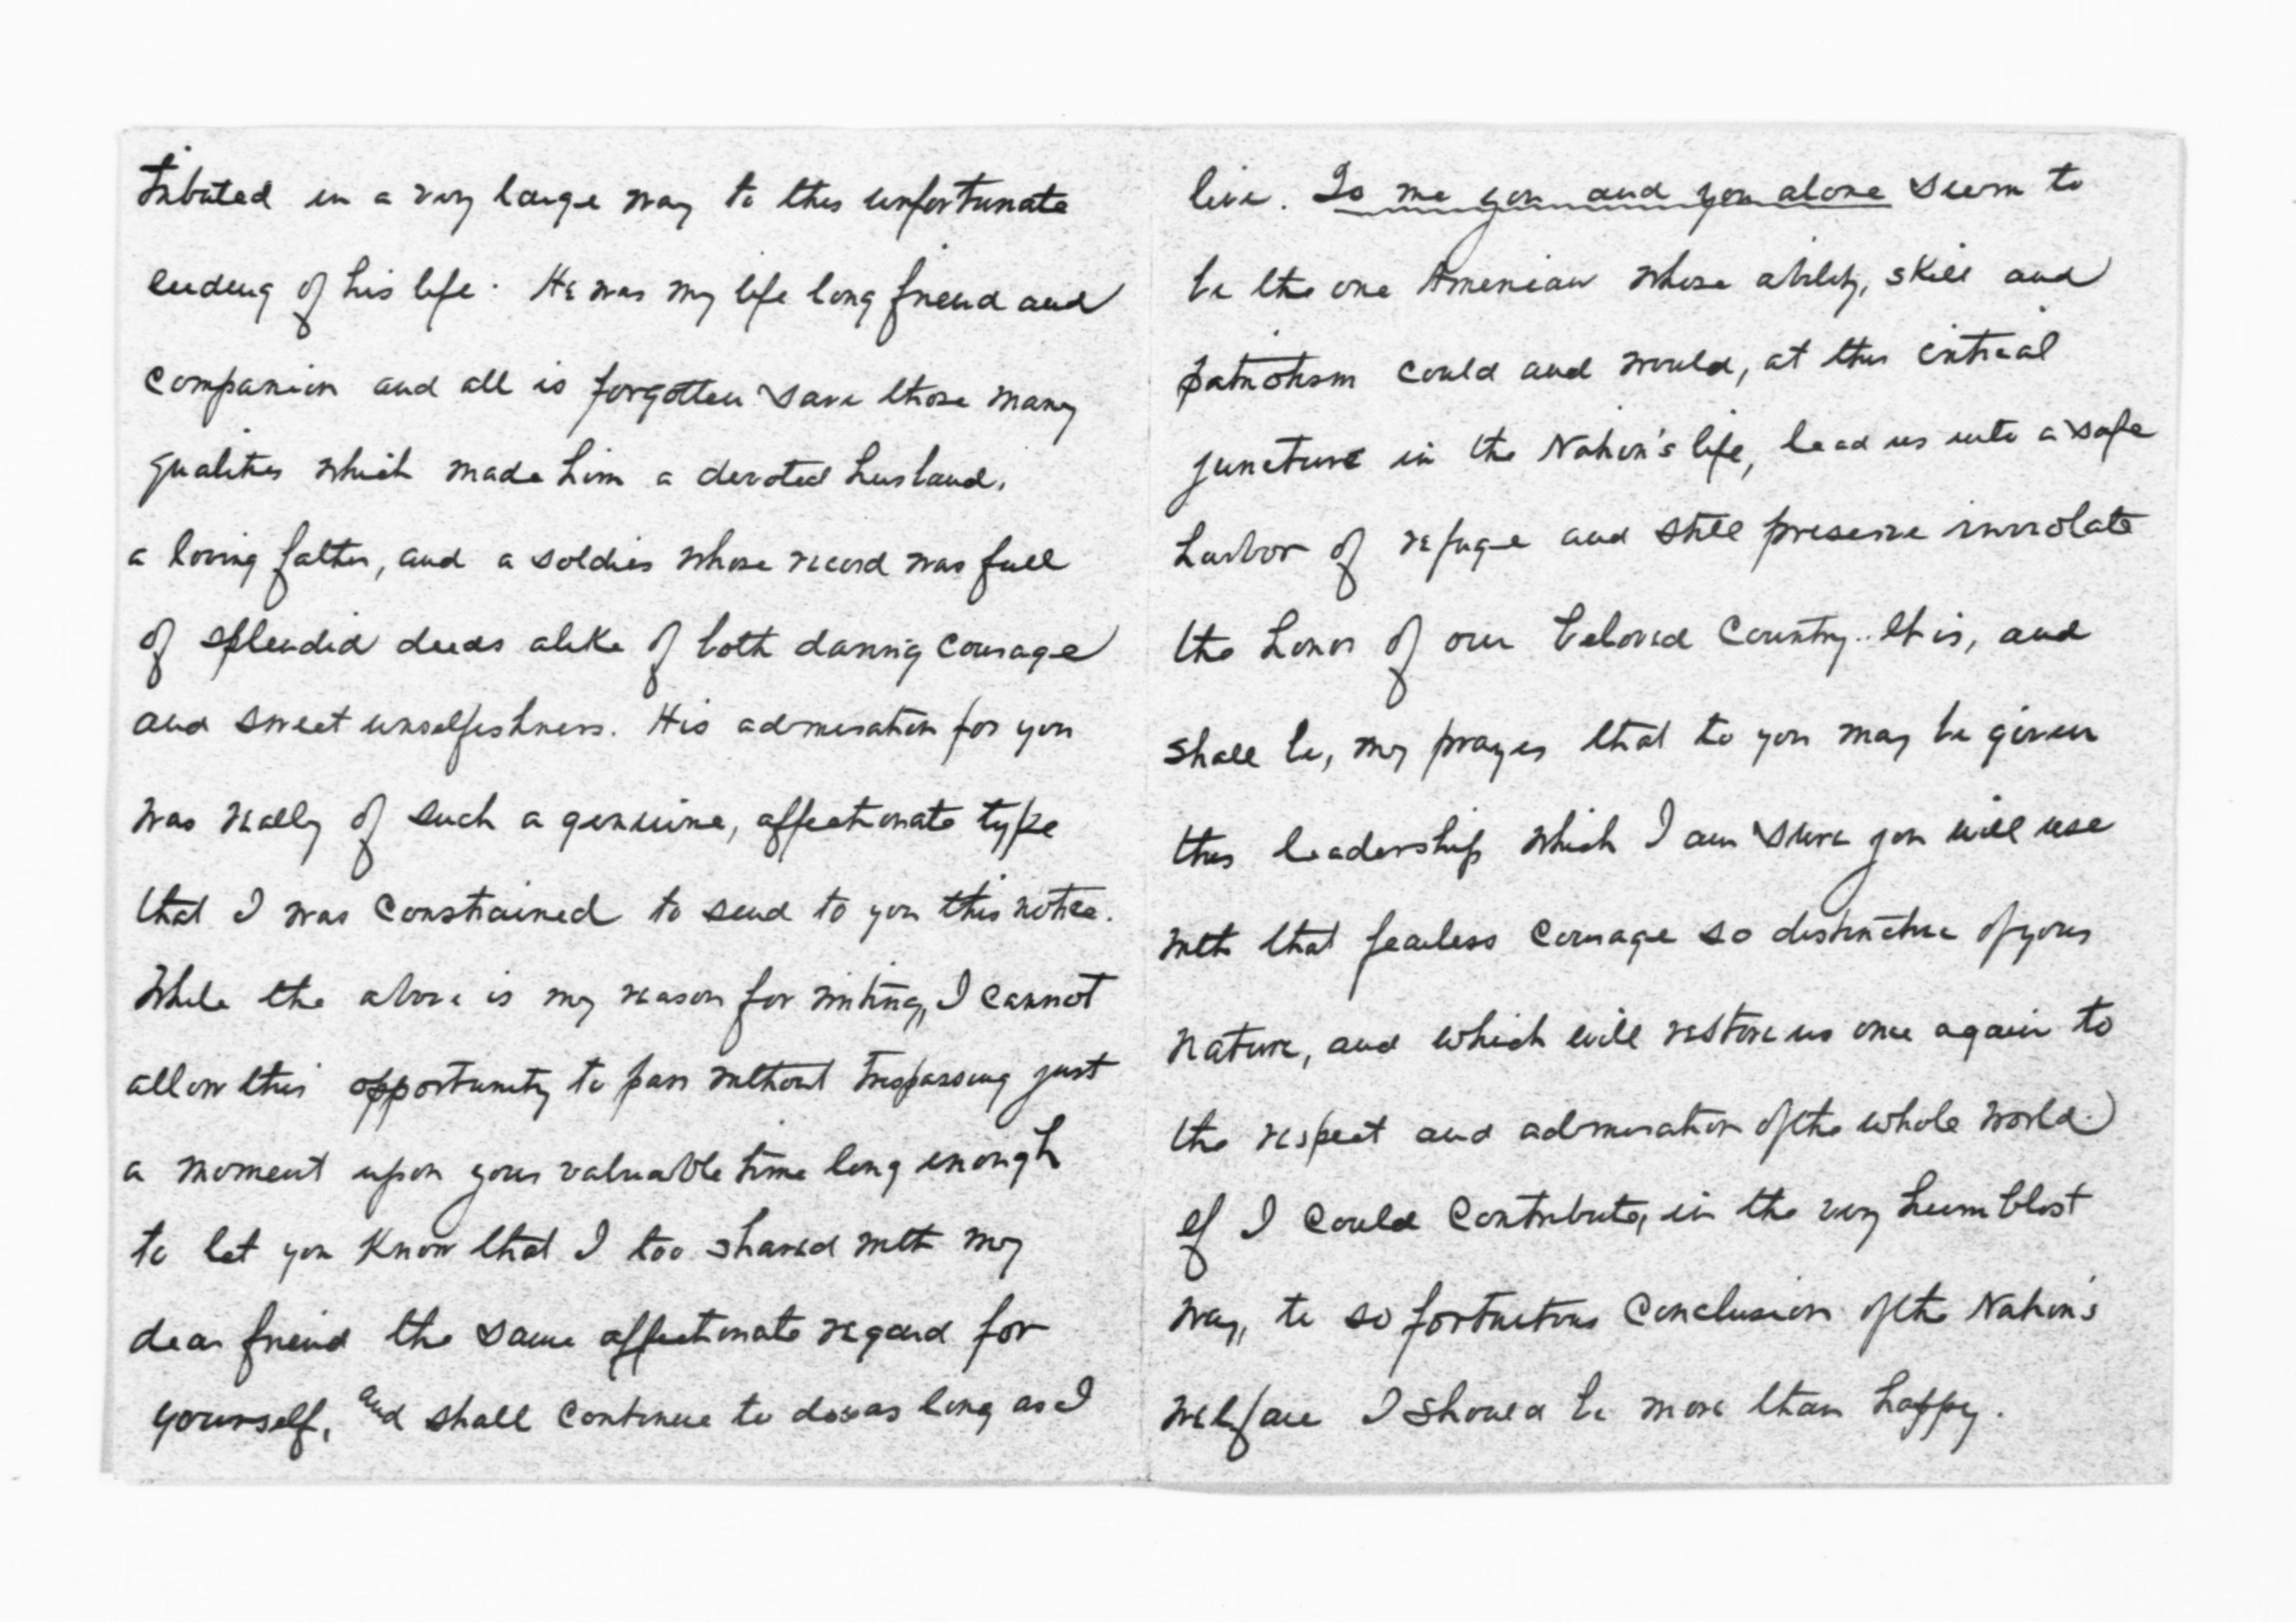 tributed in a very large way to this unfortunate
ending of his life. He was my life long friend and
companion and all is forgotten save those many
qualities which made him a devoted husband,
a loving father, and a soldier whose record was full
of splendid deeds alike of both daring courage
and sweet unselfishness. His admiration for you
was really of such a genuine, affectionate type
that I was constrained to send to you this notice.
While the above is my reason for writing, I cannot
allow this opportunity to pass without trespassing just
a moment upon your valuable time long enough
to let you know that I too shared with my
dear friend the same affectionate regard for
yourself, and shall continue to do so as long as I
live. To me you and you alone seem to
be the one American whose ability, skill and
patriotism could and would, at this critical
juncture in the Nation's life, lead us into a safe
harbor of refuge and still preserve inviolate
the honor of our beloved Country. It is, and
shall be, my prayer that to you may be given
this leadership which I am sure you will use
with that fearless courage so distinctive of your
nature, and which will restore us once again to
the respect and admiration of the whole world.
If I could contribute, in the very humblest
way, to so fortuitous conclusion of the Nation's
welfare I should be more than happy.